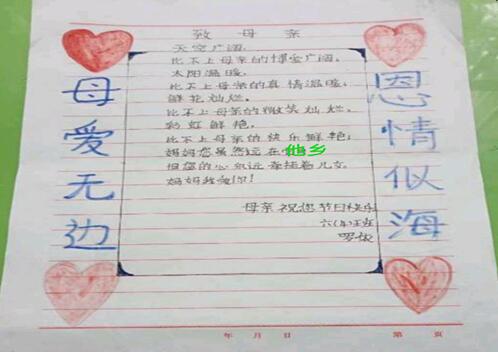 致母亲
天空广阔,
比不上母亲的博爱广阔,
太阳温暖,
比不上母亲的真情温暖,
鲜花灿烂,
比不上母亲的微笑灿烂,
彩虹鲜艳,
比不上母亲的快乐鲜艳,
妈妈您虽然远在他乡
但您的心永远牵挂着儿女
妈妈我爱你!
母亲祝您节日快乐
六(4)班
母爱无边
恩情似海
年 月 日
第 页